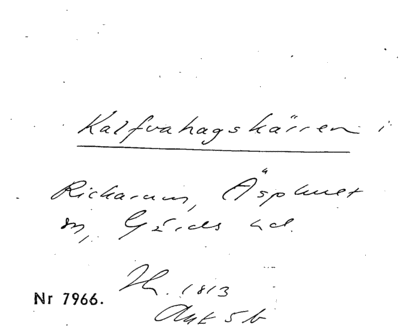 Kalfvahagskärren
Richarum, Äsphult
sn, Gärds hd.
Nr 7966.
1813
Akt 5b